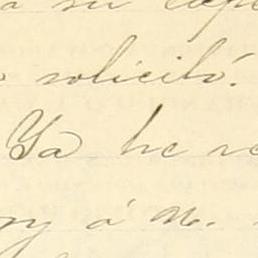 a su
solicitó.
Ya he re
á M.